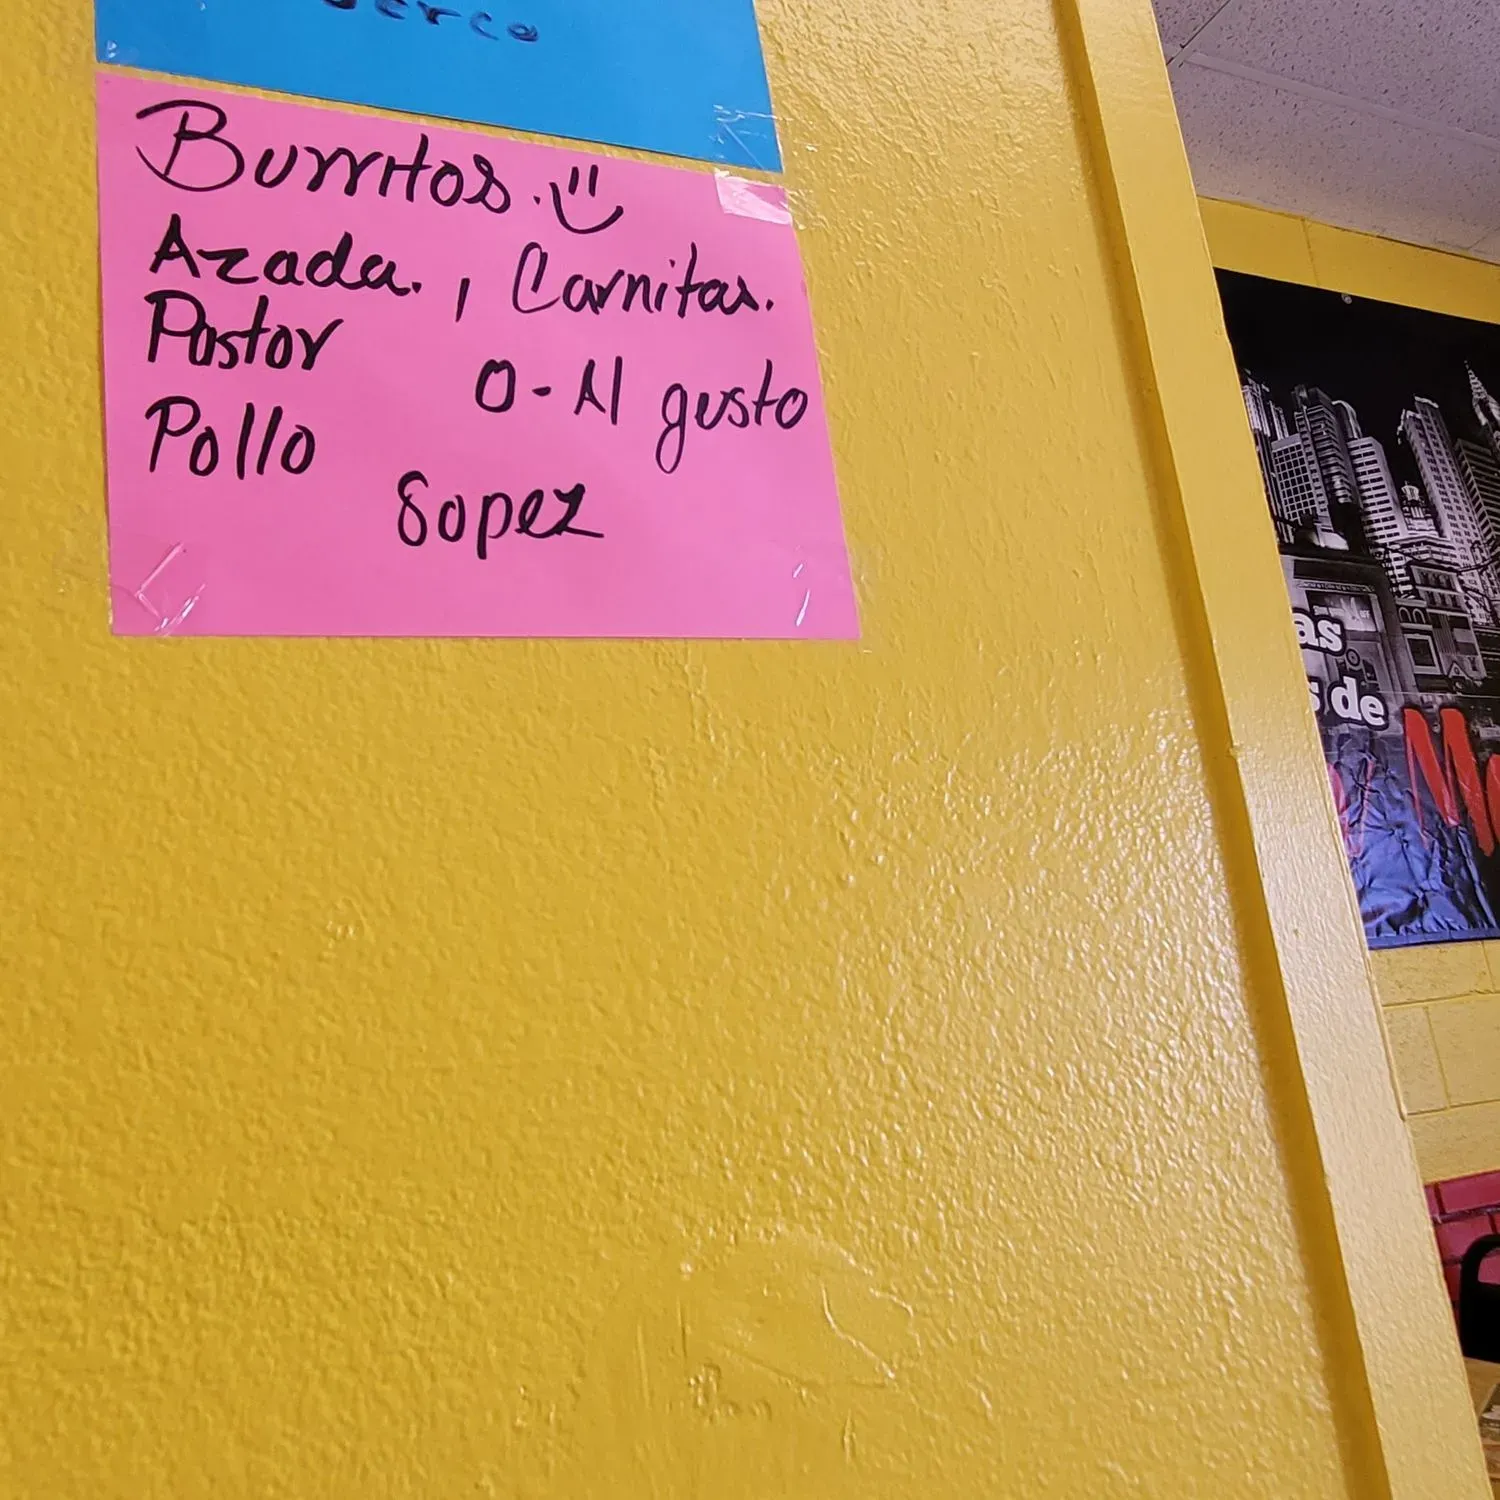 Burritos.
Azada. , Carnitas.
Pastor
O - Al gusto
Pollo
Sopez
as
de